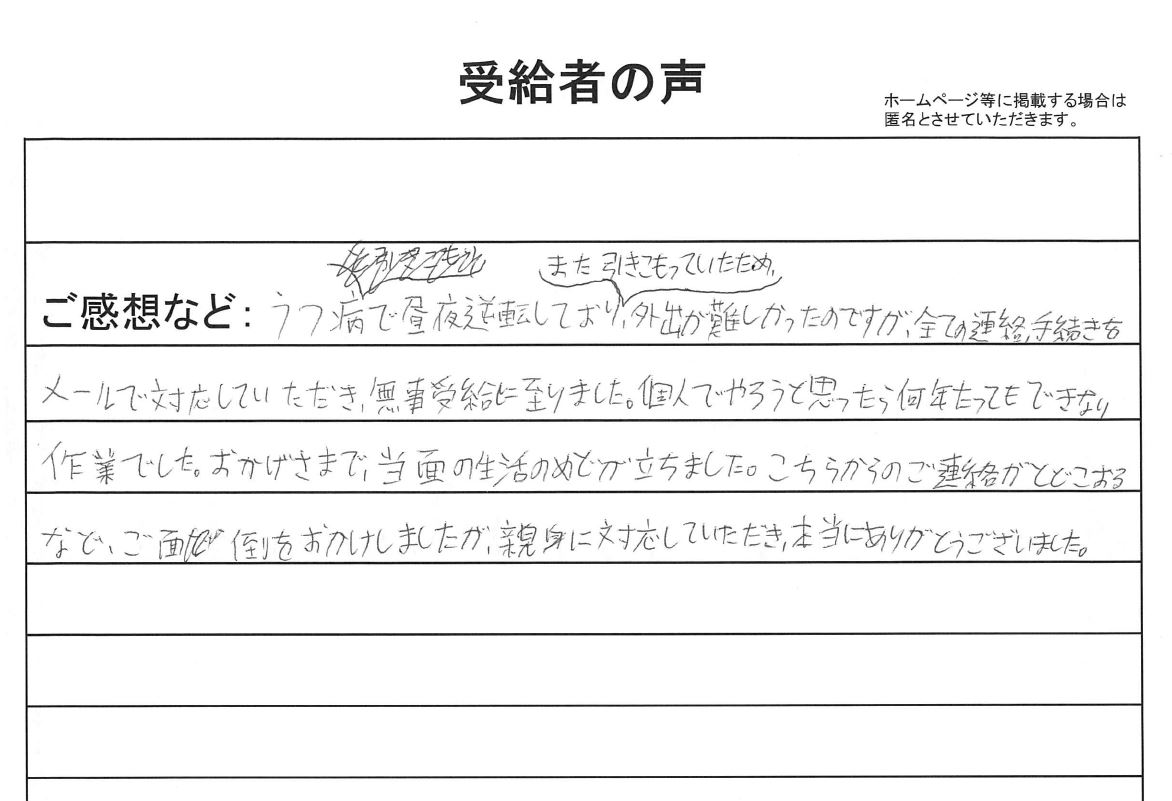 受給者の声
ホームページ等に掲載する場合は
匿名とさせていただきます。
また引きこもっていたため、
ご感想など：うつ病で昼夜逆転しており、外出が難しかったのですが、全ての連絡、手続きを
メールで対応していただき、無事受給に至りました。個人でやろうと思ったら何年たってもできない
作業でした。おかげさまで、当面の生活のめどが立ちました。こちらからのご連絡がとどこおる
など、ご面倒をおかけしましたが、親身に対応していただき、本当にありがとうございました。